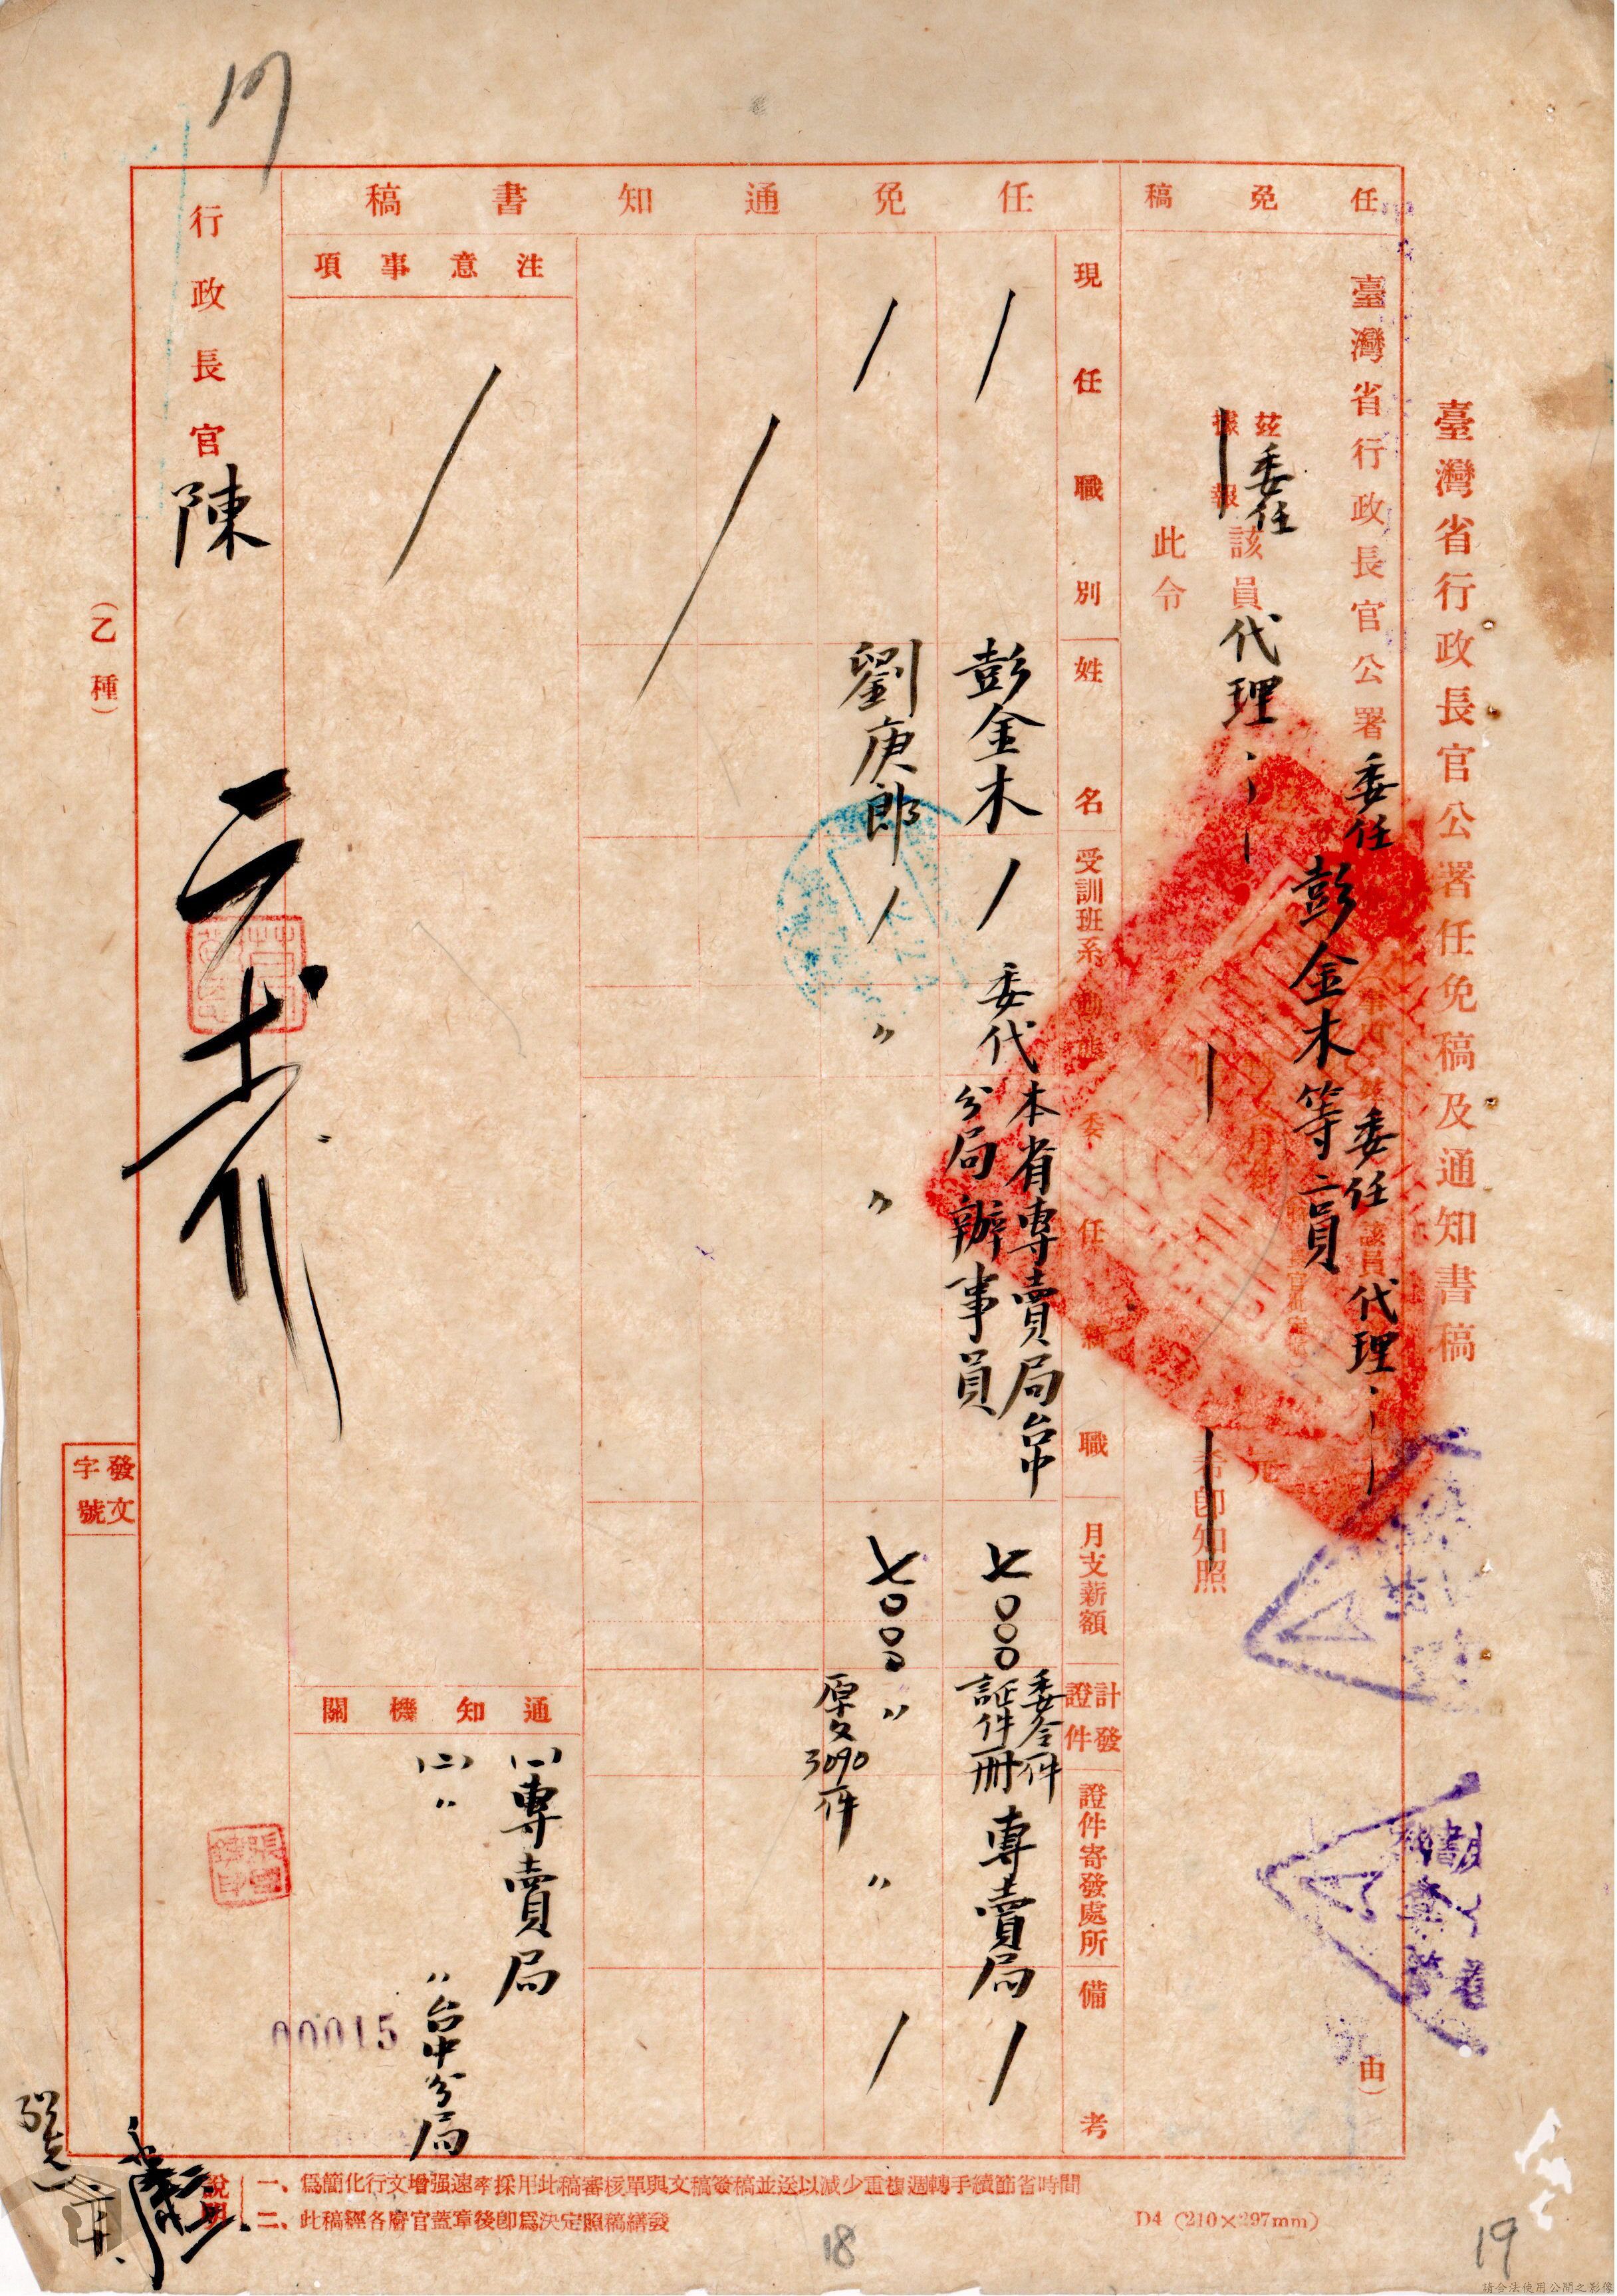 臺灣省行政長官公署任免稿及通知書稿
任免稿
臺灣省行政長官公署委任
彭金木等二員
茲委任該員代理
由）
茲委任
據報
該員代理
希即知照
此令
任免通知書稿
現任職別
姓名
受訓班系
動態
委任新職
月支薪額
計發證件
證件寄發處所
備考
彭金木
委代
本省專賣局台中
分局辦事員
七〇〇〇
委令一件
証件一冊
專賣局
劉庚郎
〃
〃
七〇〇〇
〃
原文3090一件
〃
注意事項
通知機關
㈠專賣局
㈡〃〃台中分局
行政長官陳
（乙種）
發文
字號
00015
說明
一、爲簡化行文增强速率採用此稿審核單與文稿簽稿並送以減少重複週轉手續節省時間
二、此稿經各層官蓋章後卽爲決定照稿繕發
D4 (210×297mm)
17
18
19
請合法使用公開之影像